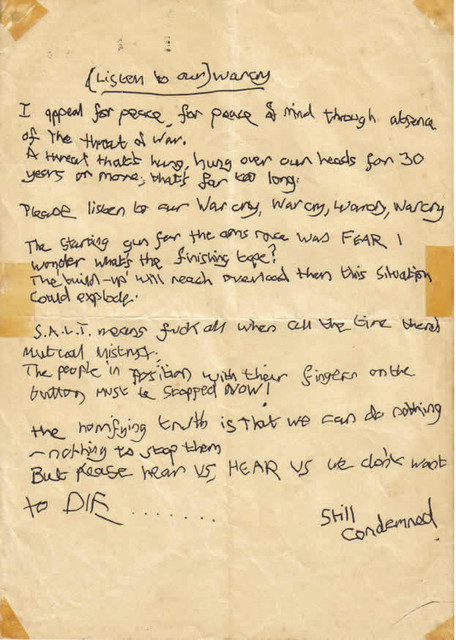 (Listen to our) warcry
I appeal for peace, for peace of mind through absence
of The threat of war.
A threat that's hung, hung over our heads for 30
years or more; that's far too long.
Please listen to our War cry, War cry, warcry, warcry
The starting gun for the arms race was FEAR I
wonder what's the finishing tape?
The 'build-up' will reach overload then this situation
could explode.
S.A.L.T. means fuck all when all the time there's
Mutual Mistrust.
The people in position with their fingers on the
button MUST be stopped NOW!
The horrifying truth is that we can do nothing
- nothing to stop them
But please hear US, HEAR US we don't want
to DIE ........
Still
Condemned.